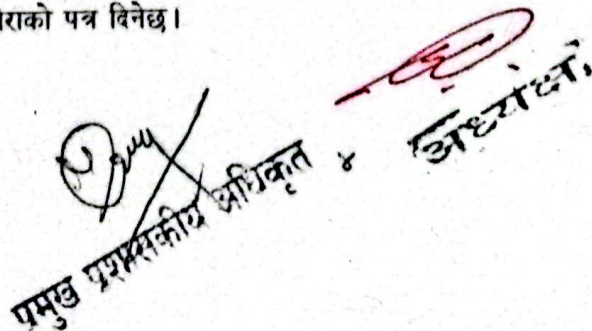 राको पत्र दिनेछ।
प्रमुख प्रशासकीय अधिकृत
४
अध्यक्ष